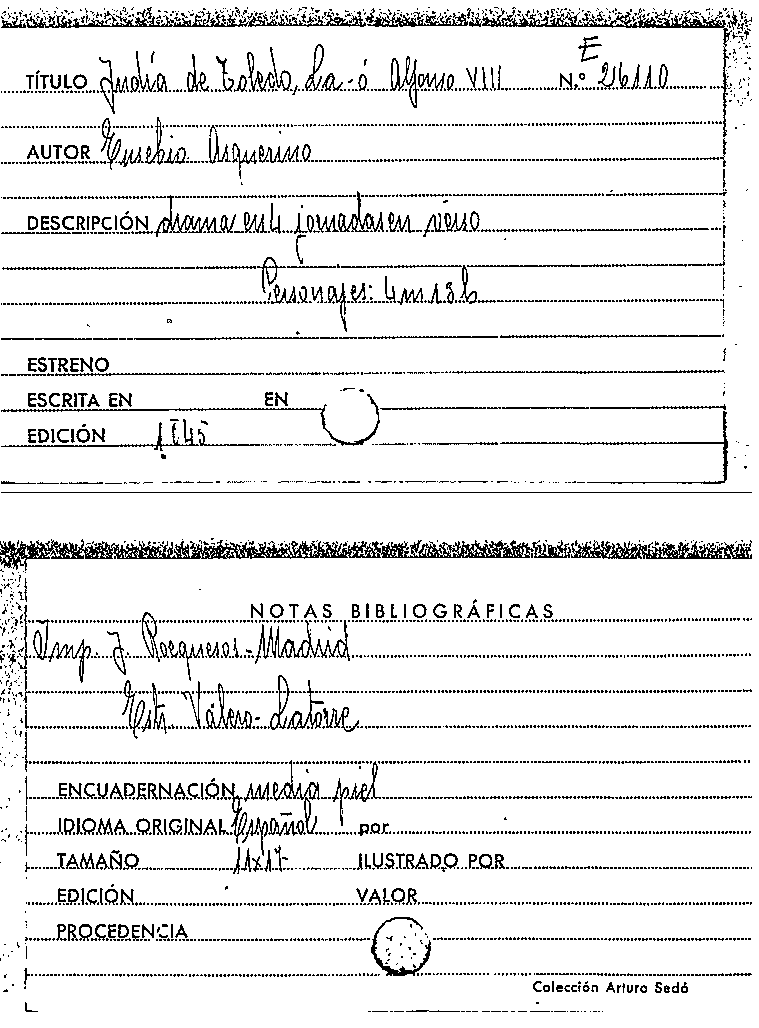 TÍTULO Judía de Toledo, La - ó Alfonso VIII N.º E 26110
AUTOR Eusebio Asquerino
DESCRIPCIÓN drama en 4 jornadas en verso
Personajes: 4 m 13 h
ESTRENO
ESCRITA EN EN
EDICIÓN
NOTAS BIBLIOGRÁFICAS
Imp. J. Madrid
Estr. Valero - Latorre
ENCUADERNACIÓN media piel
IDIOMA ORIGINAL Español por
TAMAÑO 11x17 ILUSTRADO POR
EDICIÓN VALOR
PROCEDENCIA
Colección Arturo Sedó